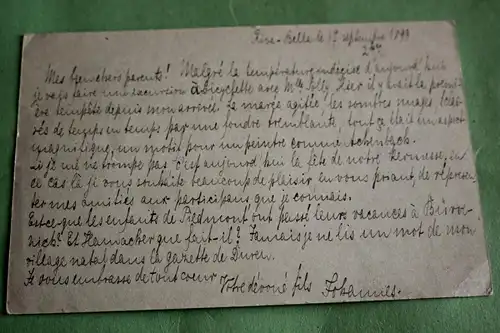 Fosa-Bella le 1er septembre 1893
Mes bien chers parents! Malgré la température indécise d'aujourd'hui
je vais faire une excursion à bicyclette avec Mlle Polly. Hier il y avait la premi-
ère tempête depuis mon arrivée. La marée agitée les sombres nuages éclai-
rés de temps en temps par une foudre tremblante, tout ça était un aspect
magnifique, un motif pour un peintre comme Achenbach.
Si je ne me trompe pas c'est aujourd'hui la fête de notre kermesse, en
ce cas là je vous souhaite beaucoup de plaisir en vous priant, de représen-
ter mes amitiés aux participans que je connais.
Est-ce que les enfants de Piedmont ont passé leurs vacances à
Et Hamacher que fait-il? Jamais je ne lis un mot de mon
village natal dans la gazette de Duren.
Je vous embrasse de tout coeur
Votre dévoué fils Johannes.